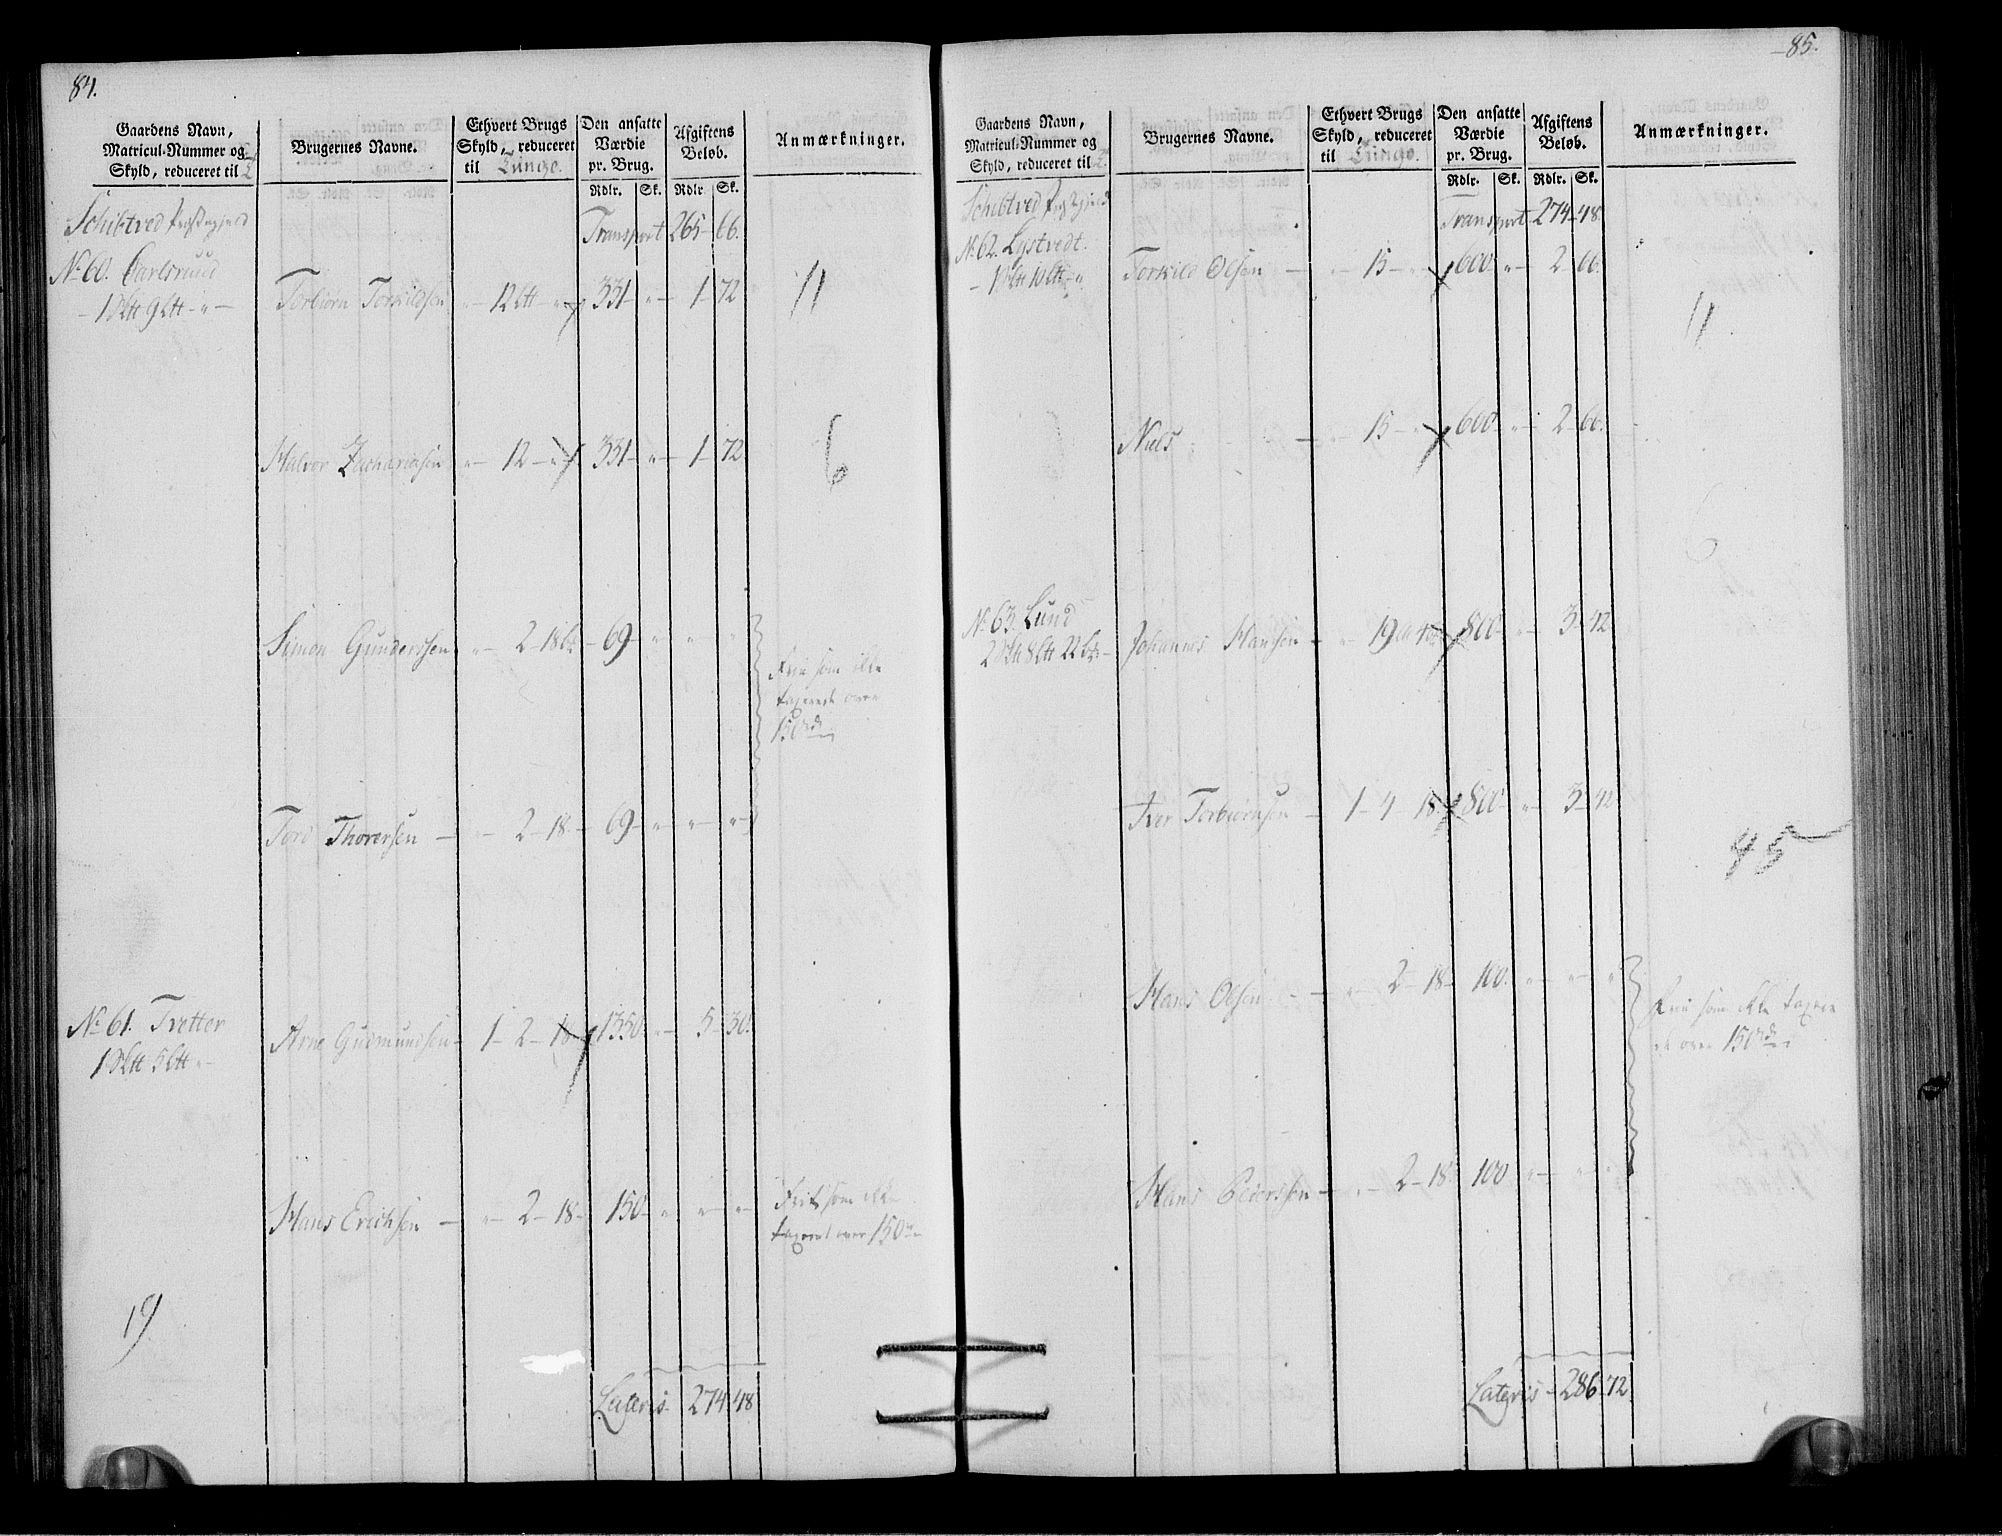 84.
Gaardens Navn,
Matricul-Nummer og
Skyld, reduceret til
Brugernes Navne.
Ethvert Brugs
Skyld, reduceret
til Tunge.
Den ansatte
Værdie
pr. Brug.
Rdlr. Sk.
Afgiftens
Beløb.
Rdlr Sk.
Anmærkninger.
Schibtved
Transport 265 - 66.
No 60. Carlsruud
Torbiörn Torkildsen - 12 - 331 - " - 1 - 72
11
Halvor Zachariasen " - 12 - " 331 - " - 1 - 72
6
Simon Gunderssen " - 2 - 18 - 69 - " - " "
Frie som ikke
taxerede over
150 rd
Tord Thoresen - " - 2 - 18 - 69 - " - " - "
No 61. Tvetter
Arne Gudmundsen - 1 - 2 - 18 - 1350 - " - 5 - 30.
Hans Erichsen - " - 2 - 18 - 150 - " - " - "
Frit som ikke
taxeret over 150
19
Lateris 274 48
85.
Gaardens Navn,
Matricul-Nummer og
Skyld, reduceret til
Brugernes Navne.
Ethvert Brugs
Skyld, reduceret
til Tunge.
Den ansatte
Værdie
pr. Brug.
Rdlr. Sk.
Afgiftens
Beløb.
Rdlr. Sk.
Anmærkninger.
Schibtved
Transport 274 - 48
No 62. Lystvedt.
Torkild Olsen - " - 15 - " 600 - " - 2 - 66.
11
Niels - " - 15 - " 600 - " - 2 - 66.
No 63. Lund
Johannes Hansen - " - 19 800 - " - 3 - 42
Iver Torbiörnsen - 1 - 4 - 18 - 800 - " - 3 - 42
45
Hans Olsen - " - 2 - 18 - 100 - " - " - "
Frie som ikke taxere
de over 150 rd
Hans Pederssen - " - 2 - 18 - 100 " - "
Lateris - 286 - 72